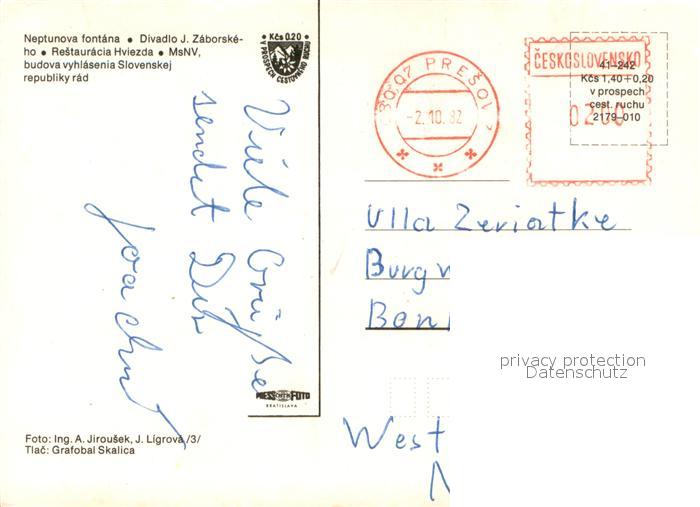 Neptunova fontána • Divadlo J. Záborské-
ho • Reštaurácia Hviezda • MsNV,
budova vyhlásenia Slovenskej
republiky rád
Kčs 0.20
V PROSPECH CESTOVNÉHO RUCHU
080 07 PREŠOV
-2.10.82
ČESKOSLOVENSKO
0200
41-242
Kčs 1,40+0,20
v prospech
cest. ruchu
2179-010
Viele Grüße
sendet Dir
Joachim
Ulla
Burg
Bon
West
PRESSFOTO
BRATISLAVA
privacy protection
Datenschutz
Foto: Ing. A. Jiroušek, J. Lígrová /3/
Tlač: Grafobal Skalica